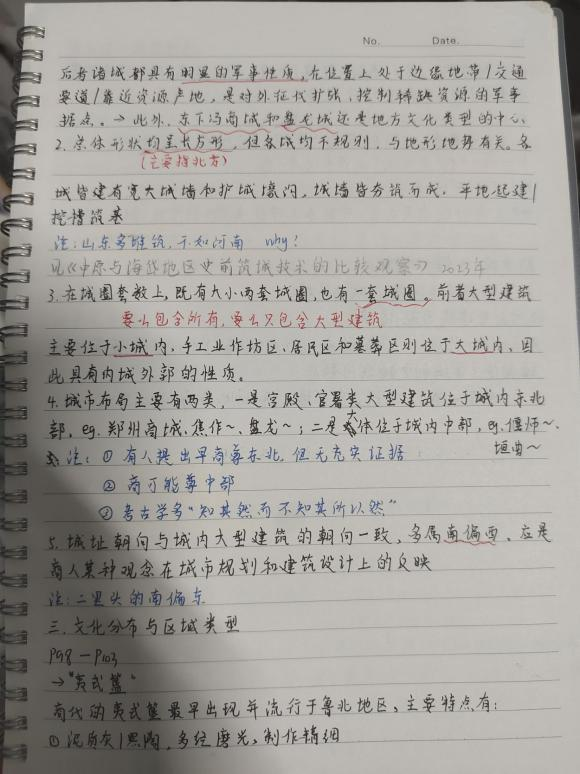 No. Date.
后者诸城都具有明显的军事性质，在位置上处于边缘地带/交通
要道/靠近资源产地，是对外征伐扩张、控制稀缺资源的军事
据点。→此外，东下冯商城和盘龙城还是地方文化类型的中心
2.总体形状均呈长方形，但各城均不规则，与地形地势有关。各
(主要指北方)
城皆建有宽大城墙和护城壕沟，城墙皆夯筑而成，平地起建/
挖槽筑基
注：山东多堆筑，不如河南 why？
见《中原与海岱地区史前筑城技术的比较观察》2023年
3.在城圈套数上，既有大小两套城圈，也有一套城圈。前者大型建筑
要么包含所有，要么只包含大型建筑
主要位于小城内，手工业作坊区、居民区和墓葬区则位于大城内，因
此具有内城外郭的性质。
4.城市布局主要有两类，一是宫殿、官署类大型建筑位于城内东北
部，eg.郑州商城、焦作~、盘龙~；二是大体位于城内中部，eg.偃师~、
垣曲~
注：①有人提出早商尊东北，但无充实证据
②商可能尊中部
③考古学多“知其然而不知其所以然”
5.城址朝向与城内大型建筑的朝向一致，多属南偏西，应是
商人某种观念在城市规划和建筑设计上的反映
注：二里头的南偏东
三.文化分布与区域类型
P98—P103
→“夷式簋”
商代的夷式簋最早出现并流行于鲁北地区，主要特点有：
①泥质灰/黑陶，多经磨光，制作精细